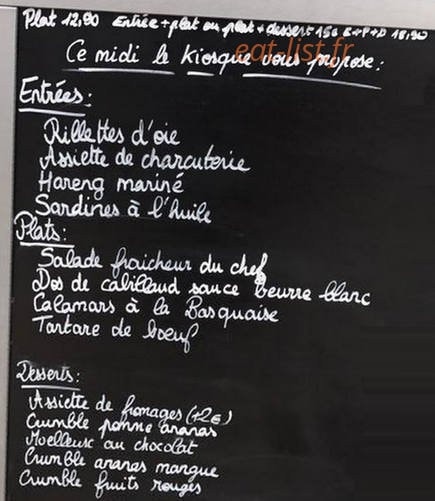 Plat 12,90 Entrée + plat ou plat + dessert 15€ E+P+D 18,90
eat-list.fr
Ce midi le Kiosque vous propose :
Entrées :
Rillettes d'oie
Assiette de charcuterie
Hareng mariné
Sardines à l'huile
Plats :
Salade fraicheur du chef
Dos de cabillaud sauce beurre blanc
Calamars à la Basquaise
Tartare de boeuf
Desserts :
Assiette de fromages (+2€)
Crumble pomme ananas
Moelleux au chocolat
Crumble ananas mangue
Crumble fruits rouges